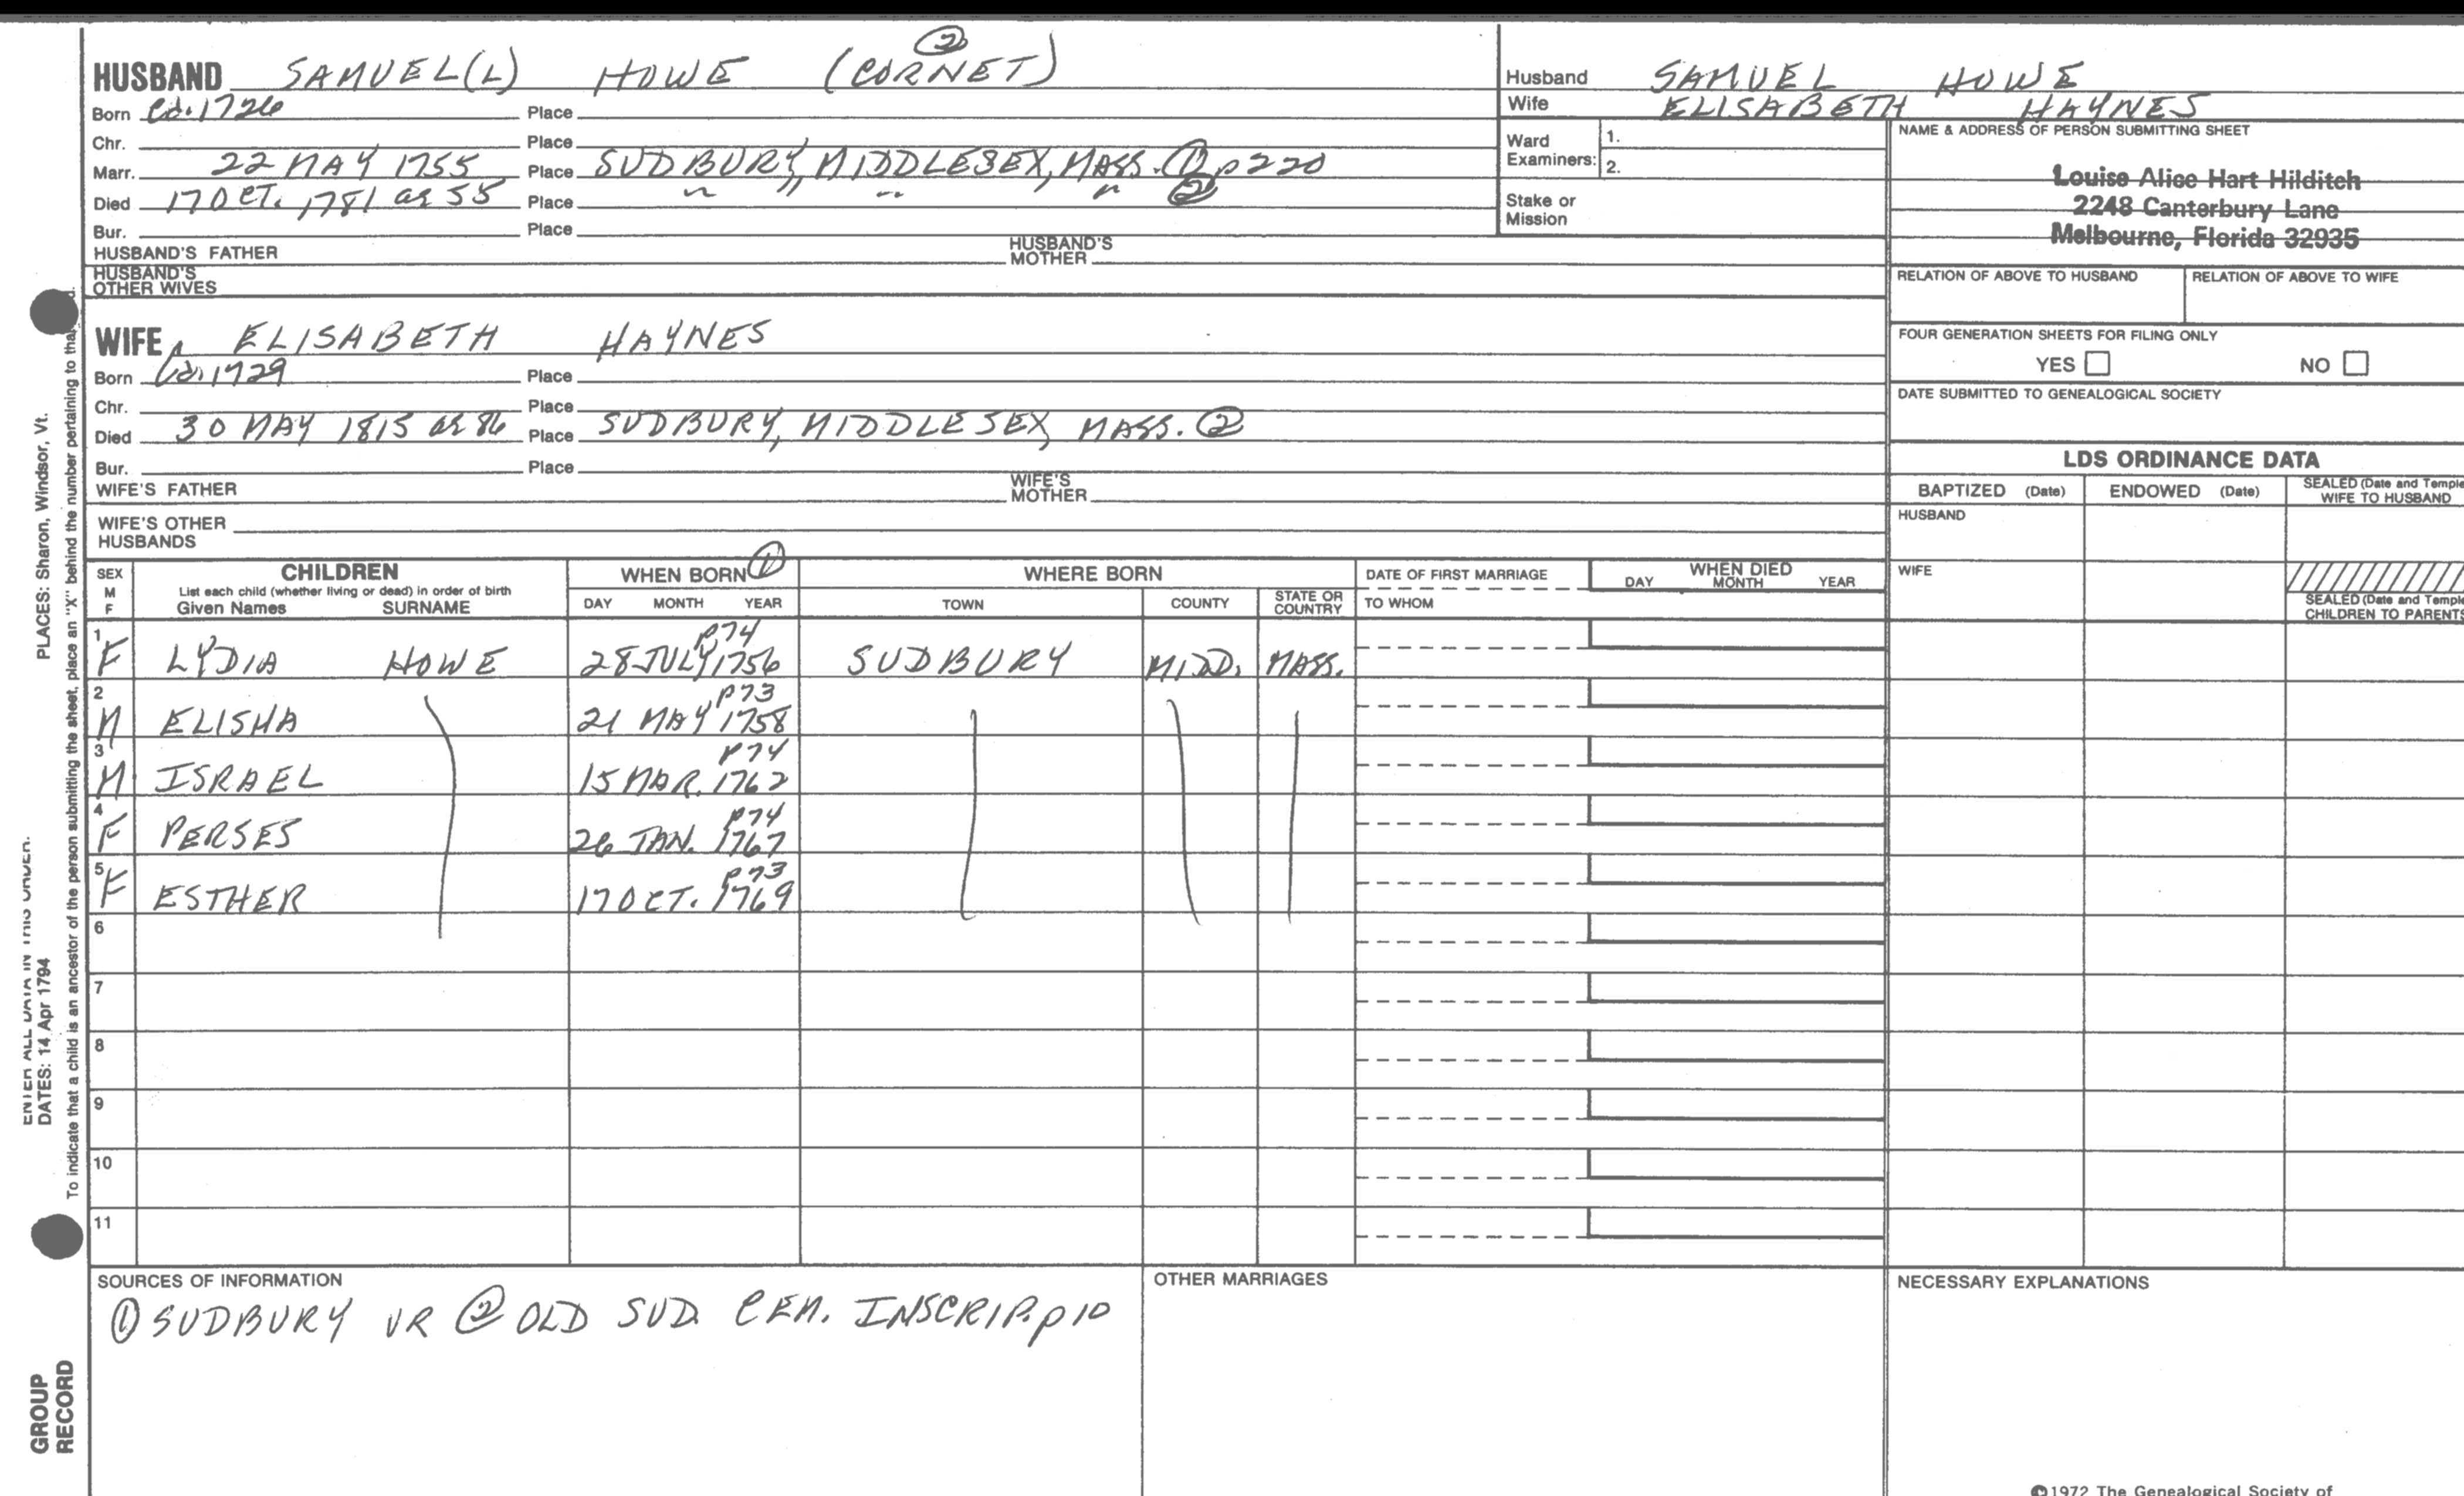 HUSBAND SAMUEL(L) HOWE (CORNET) ②
Born Cd. 1726 Place
Chr. Place
Marr. 22 MAY 1755 Place SUDBURY, MIDDLESEX, MASS. ① p220
Died 17 OCT. 1781 ae 55 Place " " " " ②
Bur. Place
HUSBAND'S FATHER HUSBAND'S MOTHER
HUSBAND'S OTHER WIVES
WIFE ELISABETH HAYNES
Born Cd. 1729 Place
Chr. Place
Died 30 MAY 1815 ae 86 Place SUDBURY, MIDDLESEX, MASS. ②
Bur. Place
WIFE'S FATHER WIFE'S MOTHER
WIFE'S OTHER HUSBANDS
Husband SAMUEL HOWE
Wife ELISABETH HAYNES
Ward Examiners: 1.
2.
Stake or Mission
NAME & ADDRESS OF PERSON SUBMITTING SHEET
Louise Alice Hart Hilditch
2248 Canterbury Lane
Melbourne, Florida 32935
RELATION OF ABOVE TO HUSBAND RELATION OF ABOVE TO WIFE
FOUR GENERATION SHEETS FOR FILING ONLY
YES NO
DATE SUBMITTED TO GENEALOGICAL SOCIETY
LDS ORDINANCE DATA
BAPTIZED (Date) ENDOWED (Date) SEALED (Date and Temple
WIFE TO HUSBAND
HUSBAND
WIFE
SEALED (Date and Temple
CHILDREN TO PARENTS
SEX M F CHILDREN WHEN BORN ① WHERE BORN DATE OF FIRST MARRIAGE WHEN DIED
List each child (whether living or dead) in order of birth
Given Names SURNAME DAY MONTH YEAR TOWN COUNTY STATE OR COUNTRY TO WHOM DAY MONTH YEAR
1 F LYDIA HOWE 28 JULY 1756 p74 SUDBURY MIDD. MASS.
2 M ELISHA 21 MAY 1758 p73
3 M ISRAEL 15 MAR. 1762 p74
4 F PERSES 26 JAN. 1767 p74
5 F ESTHER 17 OCT. 1769 p73
6
7
8
9
10
11
SOURCES OF INFORMATION
① SUDBURY VR ② OLD SUD. CEM. INSCRIP. p10
OTHER MARRIAGES
NECESSARY EXPLANATIONS
©1972 The Genealogical Society of
PLACES: Sharon, Windsor, Vt.
To indicate that a child is an ancestor of the person submitting the sheet, place an "X" behind the number pertaining to tha
ENTER ALL DATA IN THIS ORDER.
DATES: 14 Apr 1794
GROUP
RECORD